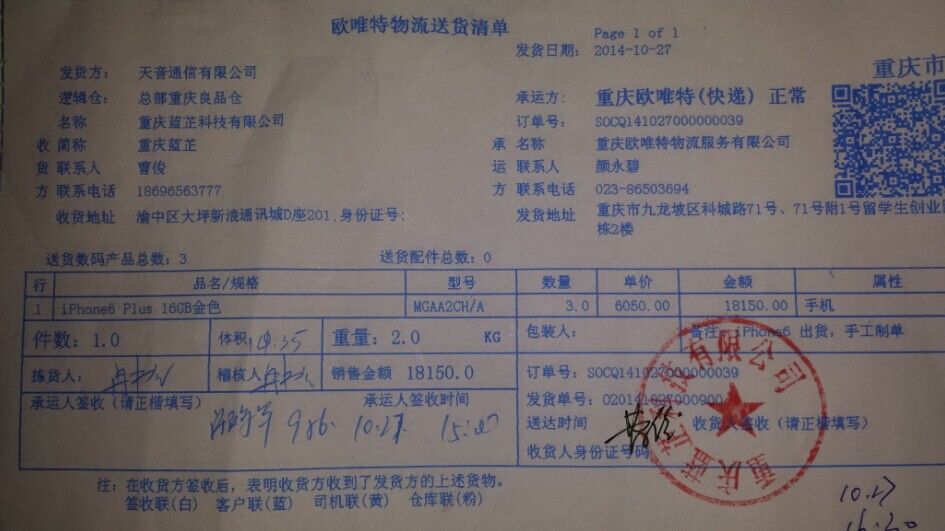 欧唯特物流送货清单
Page 1 of 1
发货日期: 2014-10-27
重庆市
发货方: 天音通信有限公司
逻辑仓: 总部重庆良品仓
承运方: 重庆欧唯特(快递) 正常
名称 重庆蓝芷科技有限公司
订单号: SOCQ141027000000039
收 简称 重庆蓝芷
承 名称 重庆欧唯特物流服务有限公司
货 联系人 曹俊
运 联系人 颜永碧
方 联系电话 18696563777
方 联系电话 023-86503694
收货地址 渝中区大坪新浪通讯城D座201;身份证号:
发货地址 重庆市九龙坡区科城路71号、71号附1号留学生创业
栋2楼
送货数码产品总数: 3 送货配件总数: 0
行 品名/规格 型号 数量 单价 金额 属性
1 iPhone6 Plus 16GB金色 MGAA2CH/A 3.0 6050.00 18150.00 手机
件数: 1.0 体积: 重量: 2.0 KG 包装人: 备注: iPhone6 出货,手工制单
拣货人: 稽核人 销售金额 18150.0
订单号: SOCQ141027000000039
发货单号: 020141027000900
承运人签收(请正楷填写) 承运人签收时间
986 10.27 15:00
送达时间 收货人签收(请正楷填写)
收货人身份证号码
重庆蓝芷科技有限公司
注: 在收货方签收后,表明收货方收到了发货方的上述货物。
签收联(白) 客户联(蓝) 司机联(黄) 仓库联(粉)
10.27